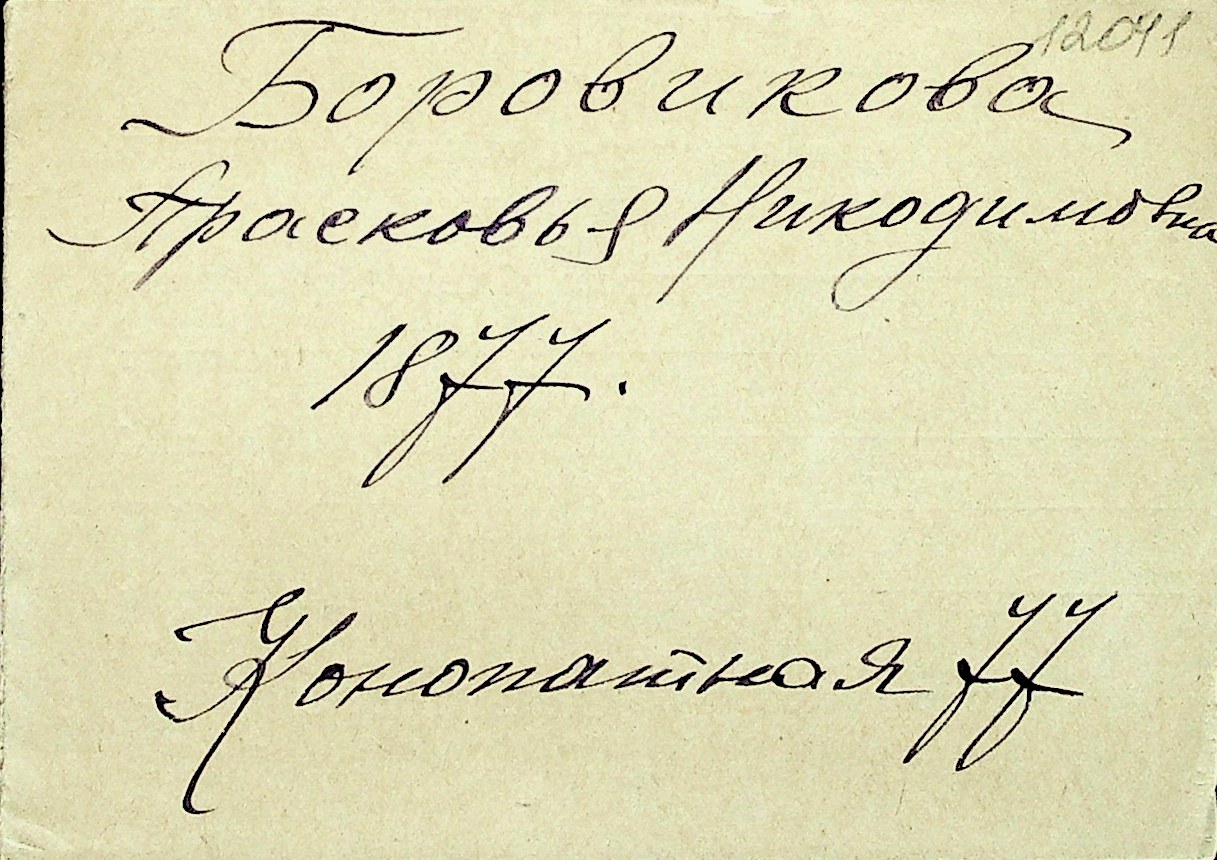 12041
Боровикова
Прасковья Никодимовна
1877.
Конопатная 77